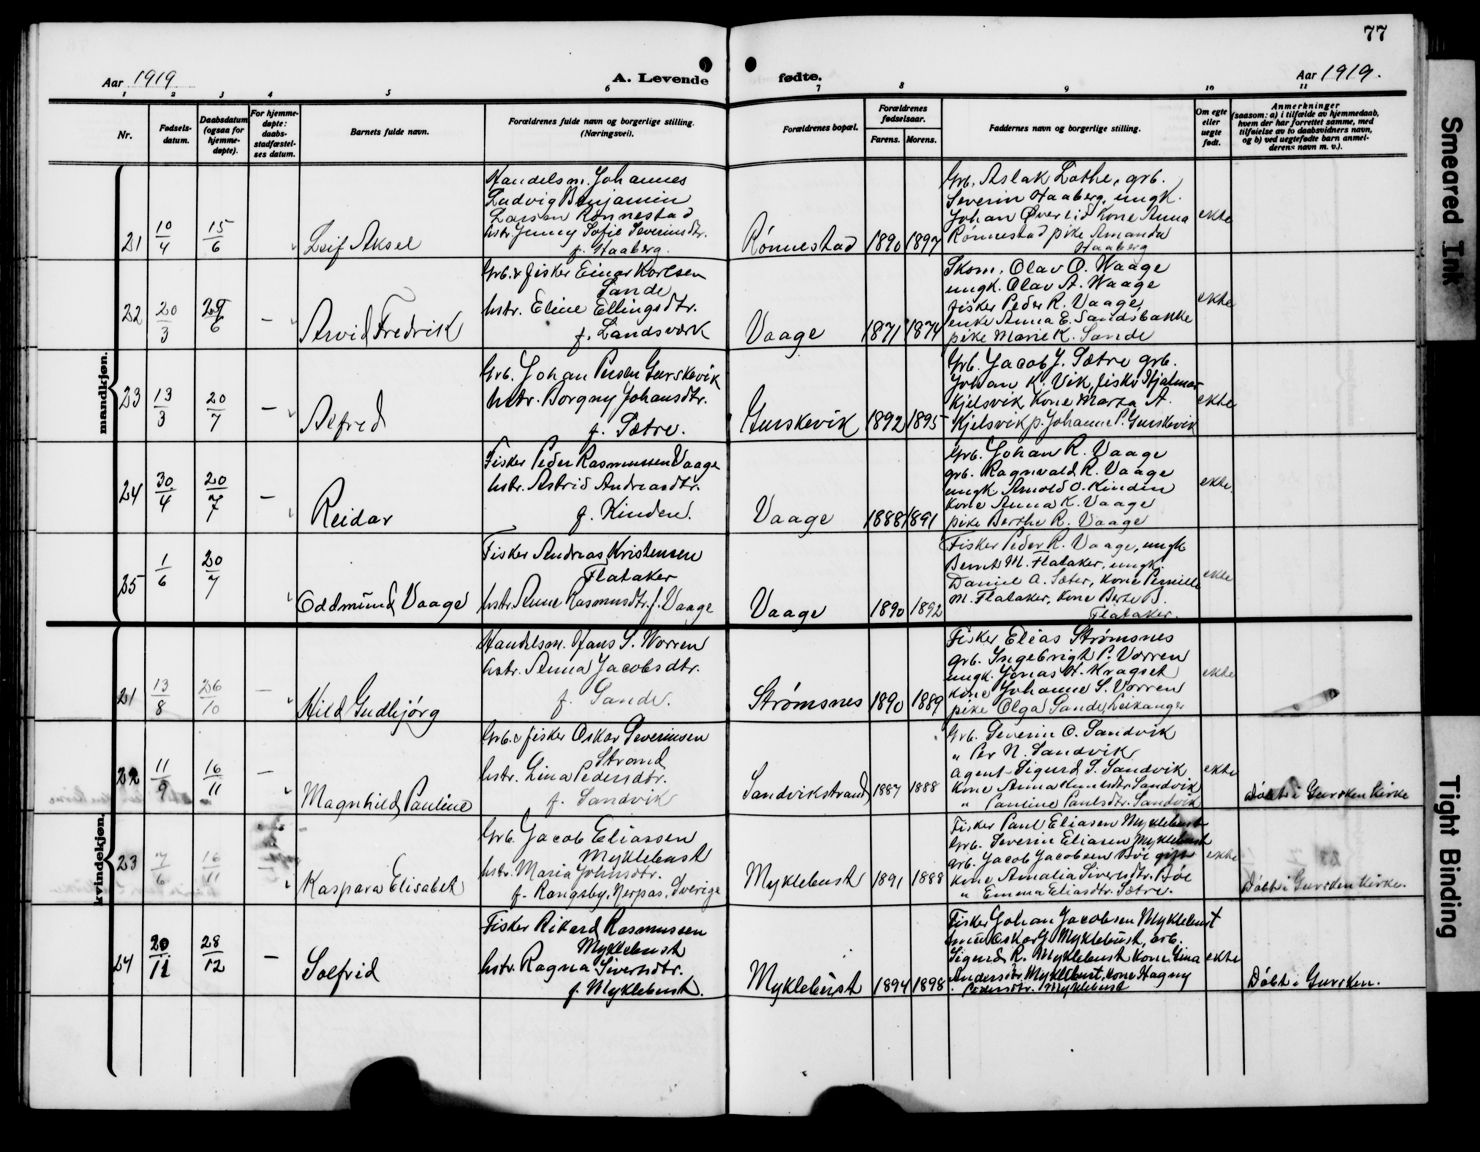 77
Aar 1919
A. Levende fødte.
Aar 1919.
1 2 3 4 5 6 7 8 9 10 11
Nr.
Fødsels-
datum.
Daabsdatum
(ogsaa for
hjemme-
døpte).
For hjemme-
døpte:
daabs-
stadfæstel-
ses datum.
Barnets fulde navn.
Forældrenes fulde navn og borgerlige stilling.
(Næringsvei).
Forældrenes bopæl.
Forældrenes
fødselsaar.
Farens. Morens.
Faddernes navn og borgerlig stilling.
Om egte
eller
uegte
født.
Anmerkninger
(saasom: a) i tilfælde av hjemmedaab,
hvem der har forrettet samme, med
tilføielse av to daabsvidners navn,
og b) ved uegtefødte barn anmel-
derens navn m. v.).
mandkjøn.
21 10/4 15/6 Leif Aksel
Handelsm. Johannes
Ludvig Benjamin
Larsen Rønnestad
hstr Jenny Sofie Severinsdtr.
f. Haaberg.
Rønnestad 1890 1897
Grb. Aslak Lothe, grb.
Severin Haaberg, ungk.
Johan Øverlid Kone Anna
Rønnestad pike Amanda
Haaberg
ekte
22 20/3 29/6 – Arvid Fredrik
Grb. & fisker Einar Karlsen
Sande
hstr. Eline Ellingsdtr.
f. Landsværk
Vaage 1871 1874
Skom. Olav O. Waage
ungk. Olav A. Waage
fisker Peder R. Vaage
enke Anna E. Sandsbakke
pike Marie K. Sande
ekte
23 13/3 20/7 – Alfred
Grb. Johan Persen Gurskevik
hstr. Borgny Johansdtr.
f. Sætre.
Gurskevik 1892 1895
Grb. Jacob J. Sætre grb.
Johan K. Vik, fisker Hjalmar
Kjelsvik Kone Marta A.
Kjelsvik p. Johanne P. Gurskevik
ekte
24 30/4 20/7 – Reidar
Fisker Peder Rasmussen Vaage
hstr. Astrid Andreasdtr.
f. Kinden.
Vaage 1888 1891
Grb. Johan R. Vaage
grb. Ragnvald R. Vaage
ungk Arnold O. Kinden
kone Anna K. Vaage
pike Berthe R. Vaage
ekte
25 1/6 20/7 Oddmund Vaage
Fisker Andreas Kristensen
Flataker
hstr. Anne Rasmusdtr. f. Vaage
Vaage 1890 1892
Fisker Peder R. Vaage, ungk
Bernt M. Flataker, ungk.
Daniel A. Sæter, kone Pernille
M. Flataker, kone Berte B.
Flataker.
ekte
kvindekjøn.
21 13/8 26/10 – Hild Gudbjørg
Handelsm. Hans S. Worren
hstr. Anna Jacobsdtr.
f. Sande.
Strømsnes 1890 1889
Fisker Elias Strømsnes
grb. Ingebrigt P. Vorren
ungk. Jonas Kragset
kone Johanne S. Vorren
pike Olga Sande, Leikanger
ekte
22 11/9 16/11 – Magnhild Pauline
Grb. & fisker Oskar Severinsen
Strand
hstr. Lina Pedersdtr.
f. Sandvik
Sandvikstrand 1887 1888
Grb. Severin O. Sandvik
" Per N. Sandvik
agent Sigurd S. Sandvik
kone Anna Sandvik
" Pauline Paulsdtr. Sandvik
ekte
Døbt i Gursken Kirke
23 7/6 16/11 Kaspara Elisabet
Grb. Jacob Eliassen
Myklebust
hstr. Maria Johnsdtr.
f. Rangsby, Nerpas, Sverige
Myklebust 1891 1888
Fisker Paul Eliasen Myklebust
Grb. Severin Eliasen Myklebust
grb. Jacob Jacobsen Bøe gift
kone Amalia Siversdtr. Bøe
" Emma Eliasdtr. Sætre.
ekte
Døbt i Gursken Kirke.
24 20/11 28/12 – Solfrid
Fisker Rikard Rasmussen
Myklebust
hstr. Ragna Siversdtr.
f. Myklebust.
Myklebust 1894 1898
Fisker Johan Jacobsen Myklebust
Oskar J. Myklebust, grb.
Sigurd R. Myklebust kone Gina
Andersdtr. Myklebust, kone Hagny
Pedersdtr. Myklebust
ekte
Døbt i Gursken.
Smeared Ink
Tight Binding